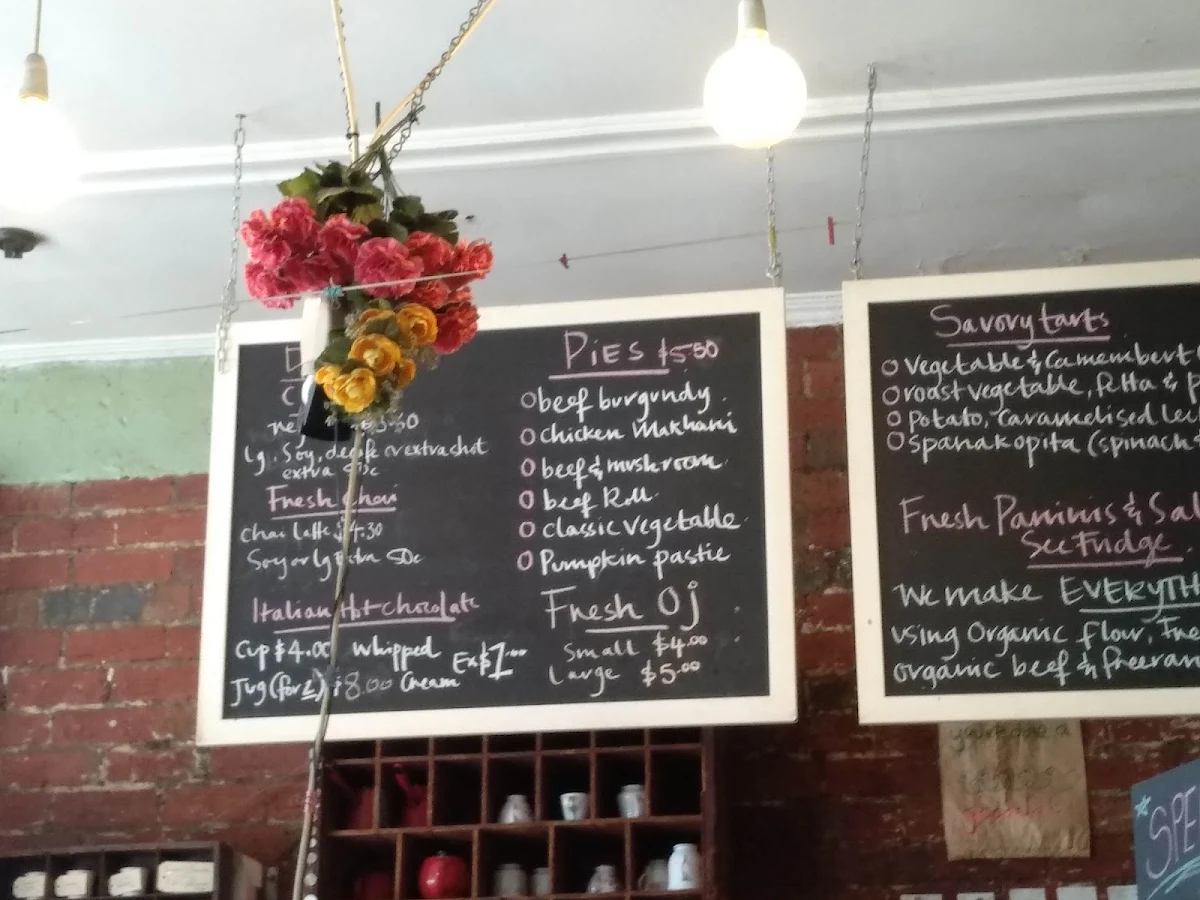 Lg. Soy, decafe or extra shot
extra 50c
Fresh Chai
Chai latte $4.30
Soy or lg Extra 50c
Italian Hot chocolate
Cup $4.00 Whipped Ex $1.00
Jug (for 2) $8.00 Cream
PiES $5.50
beef burgundy
chicken Makhani
beef & mushroom
beef Roll
classic vegetable
Pumpkin pastie
Fresh OJ
Small $4.00
Large $5.00
Savory tarts
Vegetable & Camembert
roast vegetable, fetta &
Potato, Caramelised
Spanakopita (spinach
Fresh Paninis & Sal
See Fridge
We make EVERYTH
using Organic flour,
organic beef & freeran
SPE